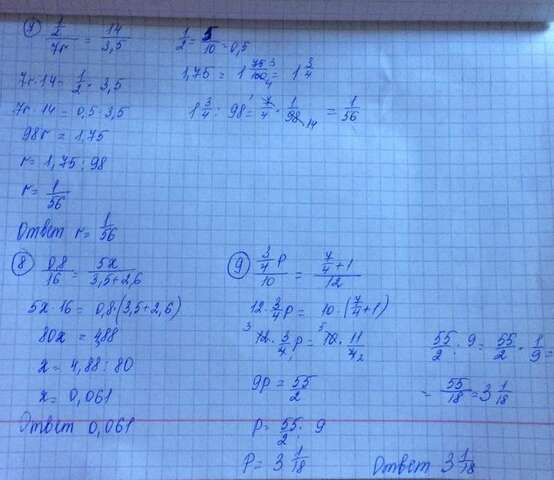 7) 1/2 / 7r = 14 / 3,5
1/2 = 5/10 = 0,5
7r · 14 = 1/2 · 3,5
1,75 = 1 75/100 = 1 3/4
7r · 14 = 0,5 · 3,5
1 3/4 : 98 = 7/4 · 1/98 = 1/56
98r = 1,75
r = 1,75 : 98
r = 1/56
Ответ r = 1/56
8) 0,8 / 16 = 5x / 3,5+2,6
5x · 16 = 0,8 · (3,5+2,6)
80x = 4,88
x = 4,88 : 80
x = 0,061
Ответ 0,061
9) 3/4 p / 10 = 7/4 + 1 / 12
12 · 3/4 p = 10 · (7/4 + 1)
12 · 3/4 p = 10 · 11/4
9p = 55/2
p = 55/2 : 9
p = 3 1/18
55/2 : 9 = 55/2 · 1/9 =
= 55/18 = 3 1/18
Ответ 3 1/18